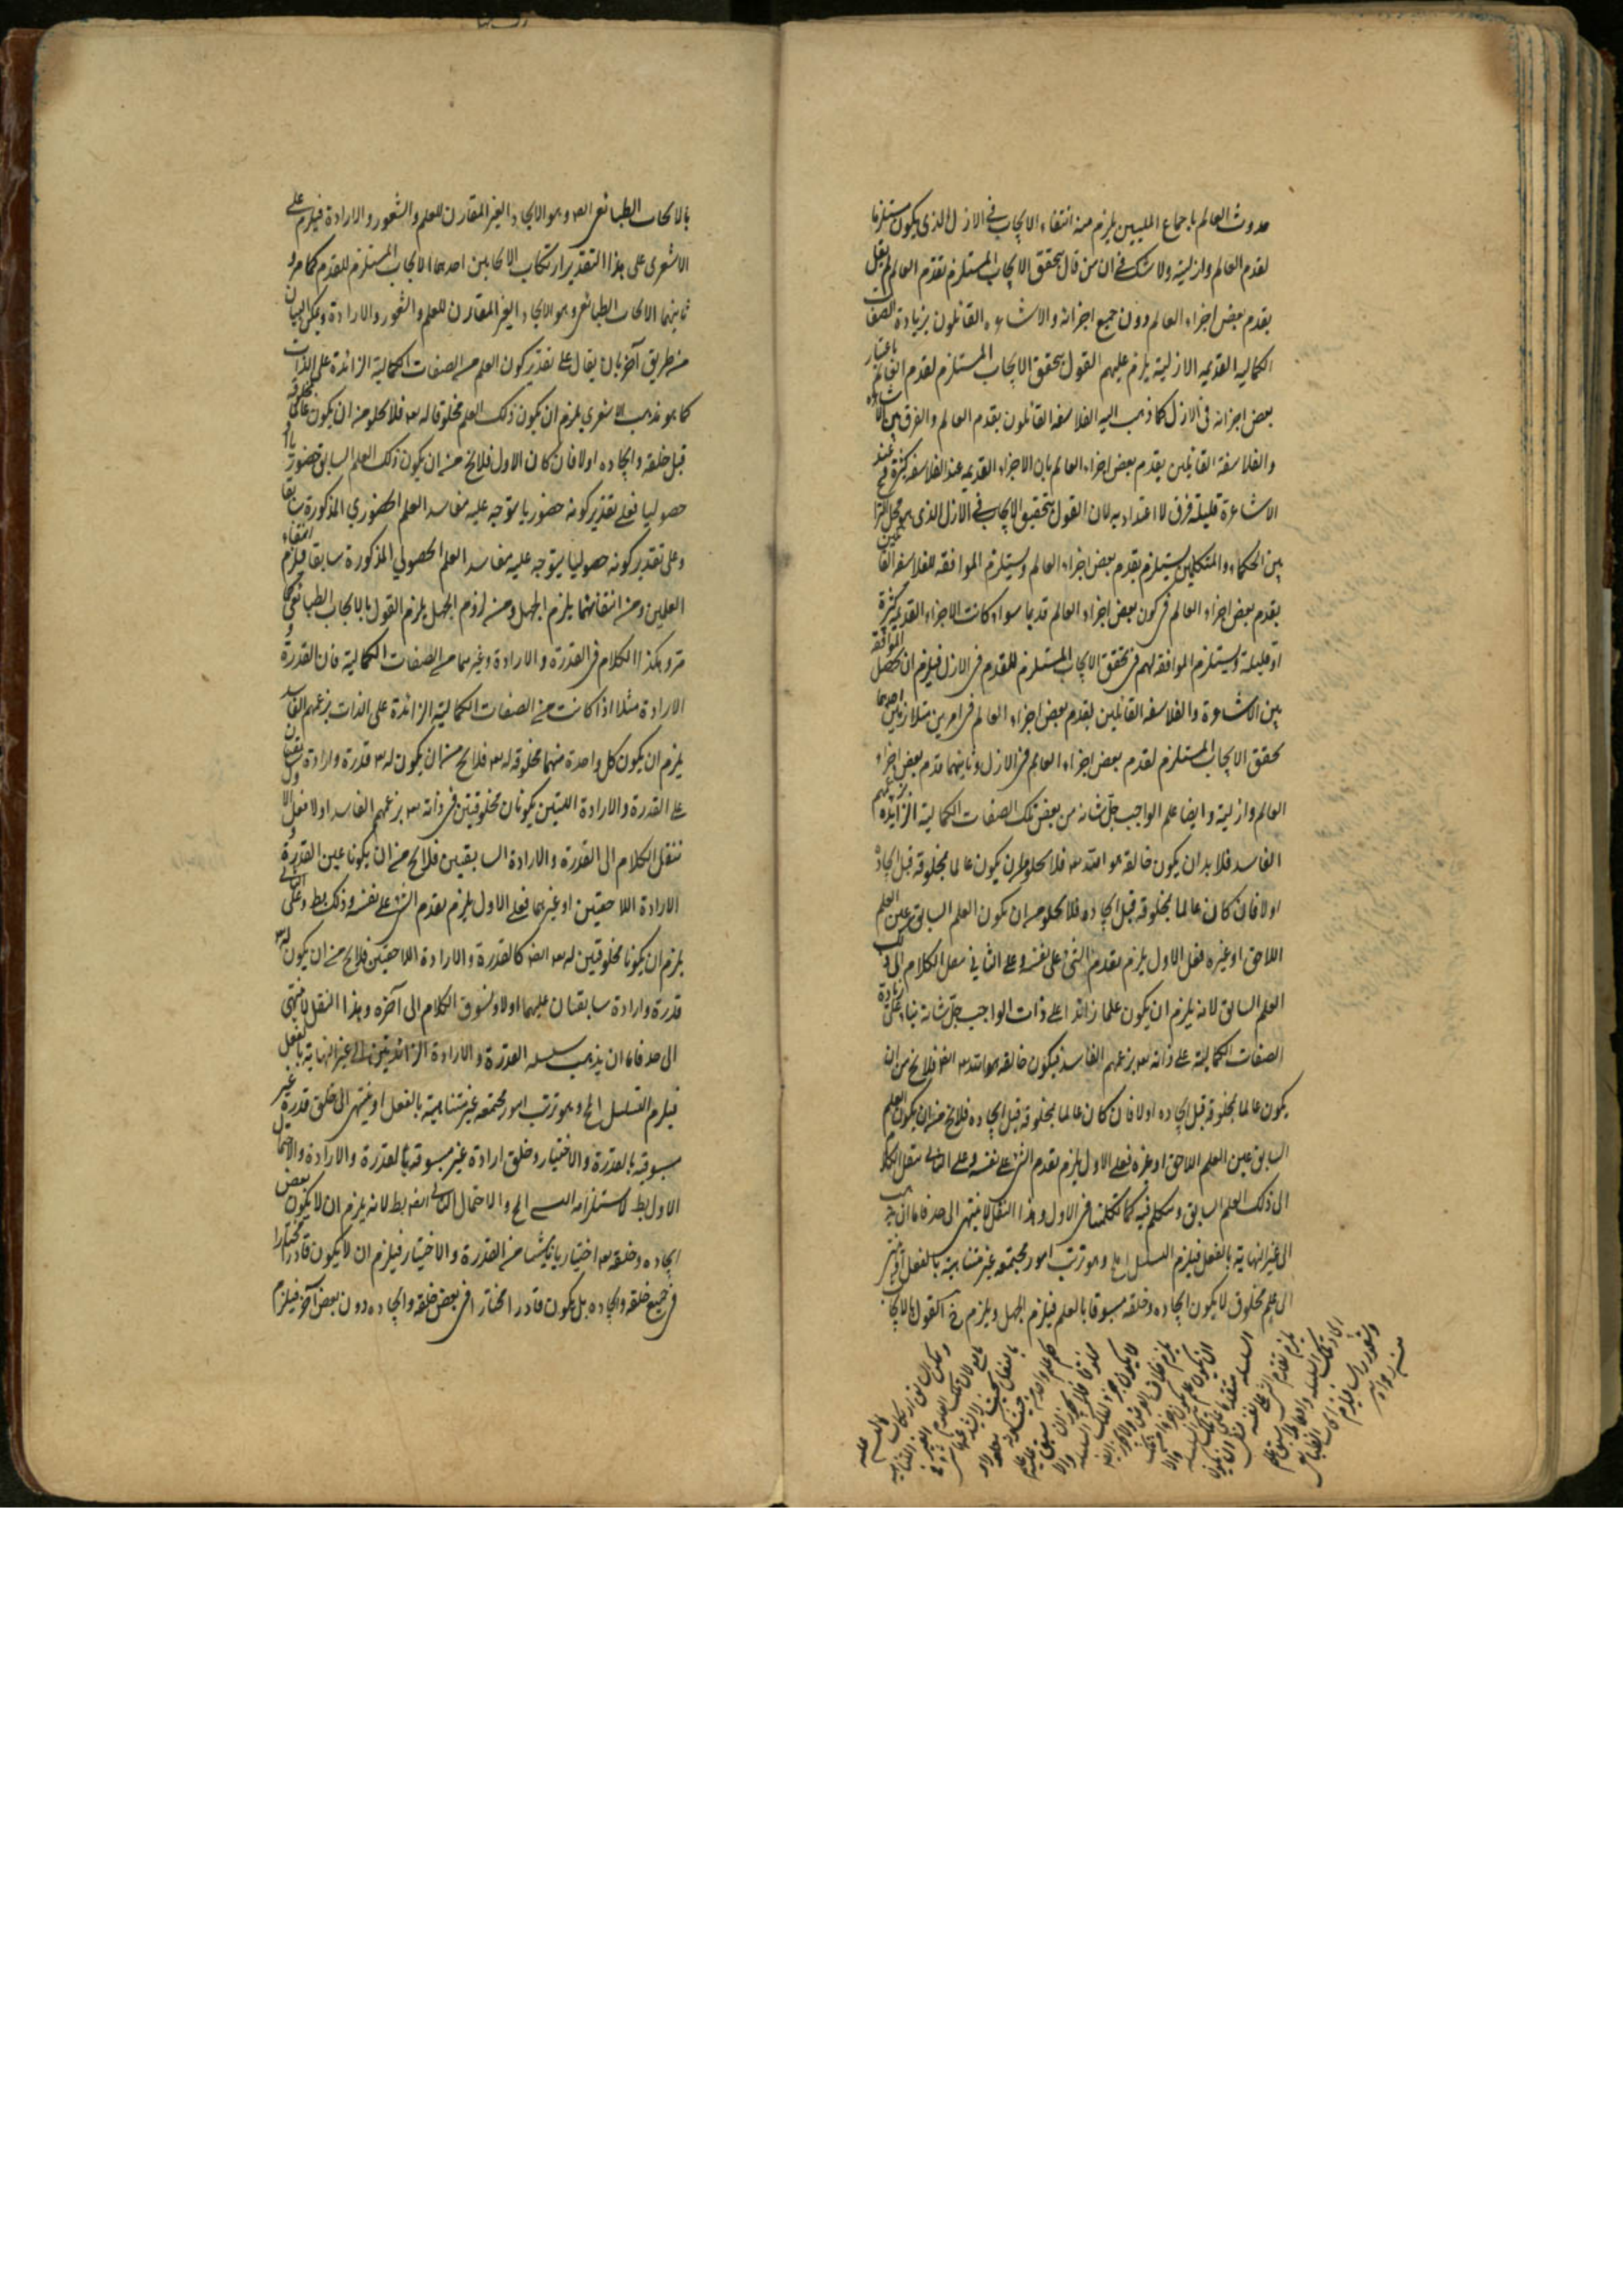 حدوث العالم باجماع المليين يلزم منه انتفاء الايجاب في الازل الذي يكون مستلزما
لقدم العالم وازليته ولا شك في ان من قال بتحقق الايجاب المستلزم لقدم العالم لم يقل
بقدم بعض اجزاء العالم دون جميع اجزائه والاشاعره القائلون بزيادة الصفات
الكماليه القديمه الازلية يلزم عليهم القول بتحقق الايجاب المستلزم لقدم العالم باعتبار
بعض اجزائه في الازل كما ذهب اليه الفلاسفه القائلون بقدم العالم والفرق بين الاشاعره
والفلاسفة القائلين بقدم بعض اجزاء العالم بان الاجزاء القديمه عند الفلاسفه كثيرة وعند
الاشاعرة قليلة فرق لا اعتداد به لان القول بتحقيق الايجاب في الازل الذي هو محل النزاع
بين الحكماء والمتكلمين يستلزم بقدم بعض اجزاء العالم ويستلزم الموافقه للفلاسفه القائلين
بقدم بعض اجزاء العالم في كون بعض اجزاء العالم قديما سواء كانت الاجزاء القديمه كثيرة
او قليلة ويستلزم الموافقه لهم في تحقق الايجاب المستلزم للقدم في الازل فيلزم ان تحصل الموافقة
بين الاشاعرة والفلاسفه القائلين بقدم بعض اجزاء العالم في امرين متلازمين احدهما
تحقق الايجاب المستلزم لقدم بعض اجزاء العالم في الازل وثانيهما قدم بعض اجزاء
العالم وازليته وايضا علم الواجب جل شانه من بعض تلك الصفات الكمالية الزايدة بزعمهم
الفاسد فلا بد ان يكون خالقه هو الله تعه فلا يخلو من ان يكون عالما بمخلوقه قبل ايجاده
اولا فان كان عالما بمخلوقه قبل ايجاده فلا يخلو من ان يكون العلم السابق عين العلم
اللاحق او غيره فعلى الاول يلزم تقدم الشي على نفسه وعلى الثاني ننقل الكلام الى ذلك
العلم السابق لانه يلزم ان يكون علما زائدا على ذات الواجب جل شانه بناء على زيادة
الصفات الكمالية على ذاته تعه بزعمهم الفاسد فيكون خالقه هو الله تعه ايضا فلا يخ من ان
يكون عالما بمخلوقه قبل ايجاده اولا فان كان عالما بمخلوقه قبل ايجاده فلا يخ من ان يكون العلم
السابق عين العلم اللاحق او غيره فعلى الاول يلزم تقدم الشي على نفسه وعلى الثاني ننقل الكلام
الى ذلك العلم السابق ونتكلم فيه كما تكلمنا في الاول وهذا النقل لا ينتهي الى حد فاما ان يذهب
الى غير النهاية بالفعل فيلزم التسلسل المح وهو ترتب امور مجتمعه غير متناهية بالفعل او ينتهي
الى علم مخلوق لا يكون ايجاده وخلقه مسبوقا بالعلم فيلزم الجهل ويلزم ح القول بالايجاب
بالايجاب الطبائعي ايضا وهو الايجاد الغير المقارن للعلم والشعور والارادة فيلزم على
الاشعري على هذا التقدير ارتكاب الايجابين احدهما الايجاب المستلزم للقدم كما مر و
ثانيهما الايجاب الطبائعي وهو الايجاد الغير المقارن للعلم والشعور والارادة ويمكن البيان
من طريق آخر بان يقال على تقدير كون العلم من الصفات الكمالية الزائدة على الذات
كما هو مذهب الاشعري يلزم ان يكون ذلك العلم مخلوقا له تعه فلا يخلو من ان يكون عالما بمخلوقه
قبل خلقه وايجاده اولا فان كان الاول فلا يخ من ان يكون ذلك العلم السابق حضوريا او
حصوليا فعلى تقدير كونه حضوريا يتوجه عليه مفاسد العلم الحضوري المذكورة سابقا
وعلى تقدير كونه حصوليا يتوجه عليه مفاسد العلم الحصولي المذكورة سابقا فيلزم انتفاء
العلمين ومن انتفائهما يلزم الجهل ومن لزوم الجهل يلزم القول بالايجاب الطبائعي كما
مر وهكذا الكلام في القدرة والارادة وغيرهما من الصفات الكمالية فان القدرة و
الارادة مثلا اذا كانت من الصفات الكمالية الزائدة على الذات بزعمهم الفاسد
يلزم ان يكون كل واحدة منهما مخلوقه له تعه فلا يخ من ان يكون له تعه قدرة وارادة سابقتان
على القدرة والارادة اللتين يكونان مخلوقتين في ذاته تعه بزعمهم الفاسد اولا فعلى الاول
ننقل الكلام الى القدرة والارادة السابقتين فلا يخ من ان يكونا عين القدرة و
الارادة اللاحقتين او غيرهما فعلى الاول يلزم تقدم الشي على نفسه وذلك بط وعلى الثاني
يلزم ان يكونا مخلوقتين له تعه ايضا كالقدرة والارادة اللاحقتين فلا يخ من ان يكون له تعه
قدرة وارادة سابقتان عليهما اولا ونسوق الكلام الى آخره وهذا النقل لا ينتهي
الى حد فاما ان يذهب سلسله القدرة والارادة الزائدتين الى غير النهاية بالفعل
فيلزم التسلسل المح وهو ترتب امور مجتمعه غير متناهية بالفعل او ينتهي الى خلق قدرة غير
مسبوقه بالقدرة والاختيار وخلق ارادة غير مسبوقه بالقدرة والارادة والاحتمال
الاول بط لاستلزامه التسلسل المح والاحتمال الثاني ايضا بط لانه يلزم ان لا يكون بعض
ايجاده وخلقه تعه اختياريا ناشئا من القدرة والاختيار فيلزم ان لا يكون قادرا مختارا
في جميع خلقه وايجاده بل يكون قادرا مختارا في بعض خلقه وايجاده دون بعض آخر فيلزم